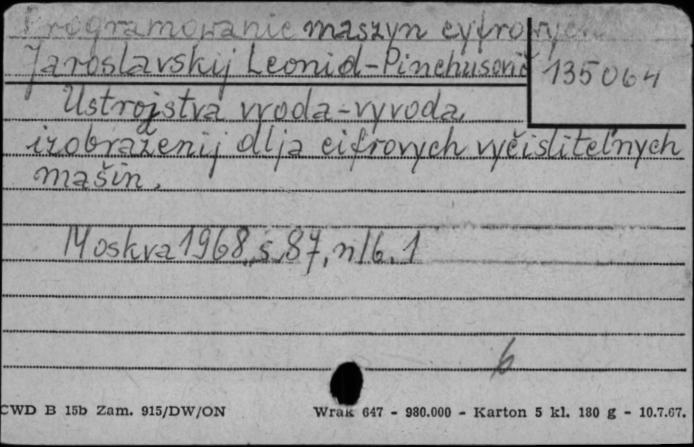 Programowanie maszyn cyfrowych
Jaroslavskij Leonid-Pinchusovič
135064
Ustrojstva vvoda-vyvoda
izobraženij dlja cifrovych vyčislitel'nych
mašin.
Moskva 1968, s. 87, nlb. 1
b
CWD B 15b Zam. 915/DW/ON
Wrak 647 - 980.000 - Karton 5 kl. 180 g - 10.7.67.